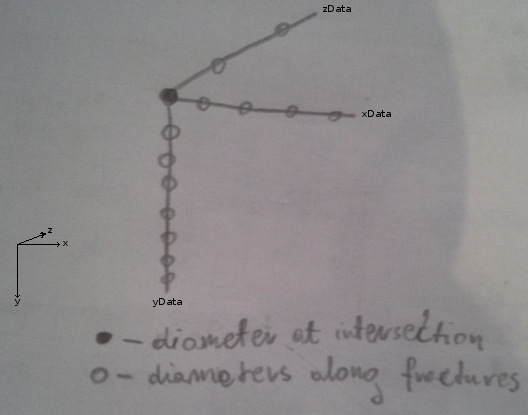 zData
xData
z
x
y
yData
- diameter at intersection
- diameters along fractures